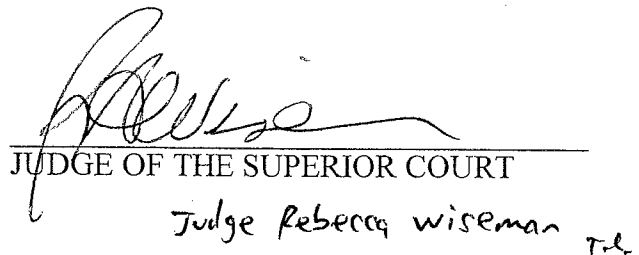 JUDGE OF THE SUPERIOR COURT
Judge Rebecca Wiseman